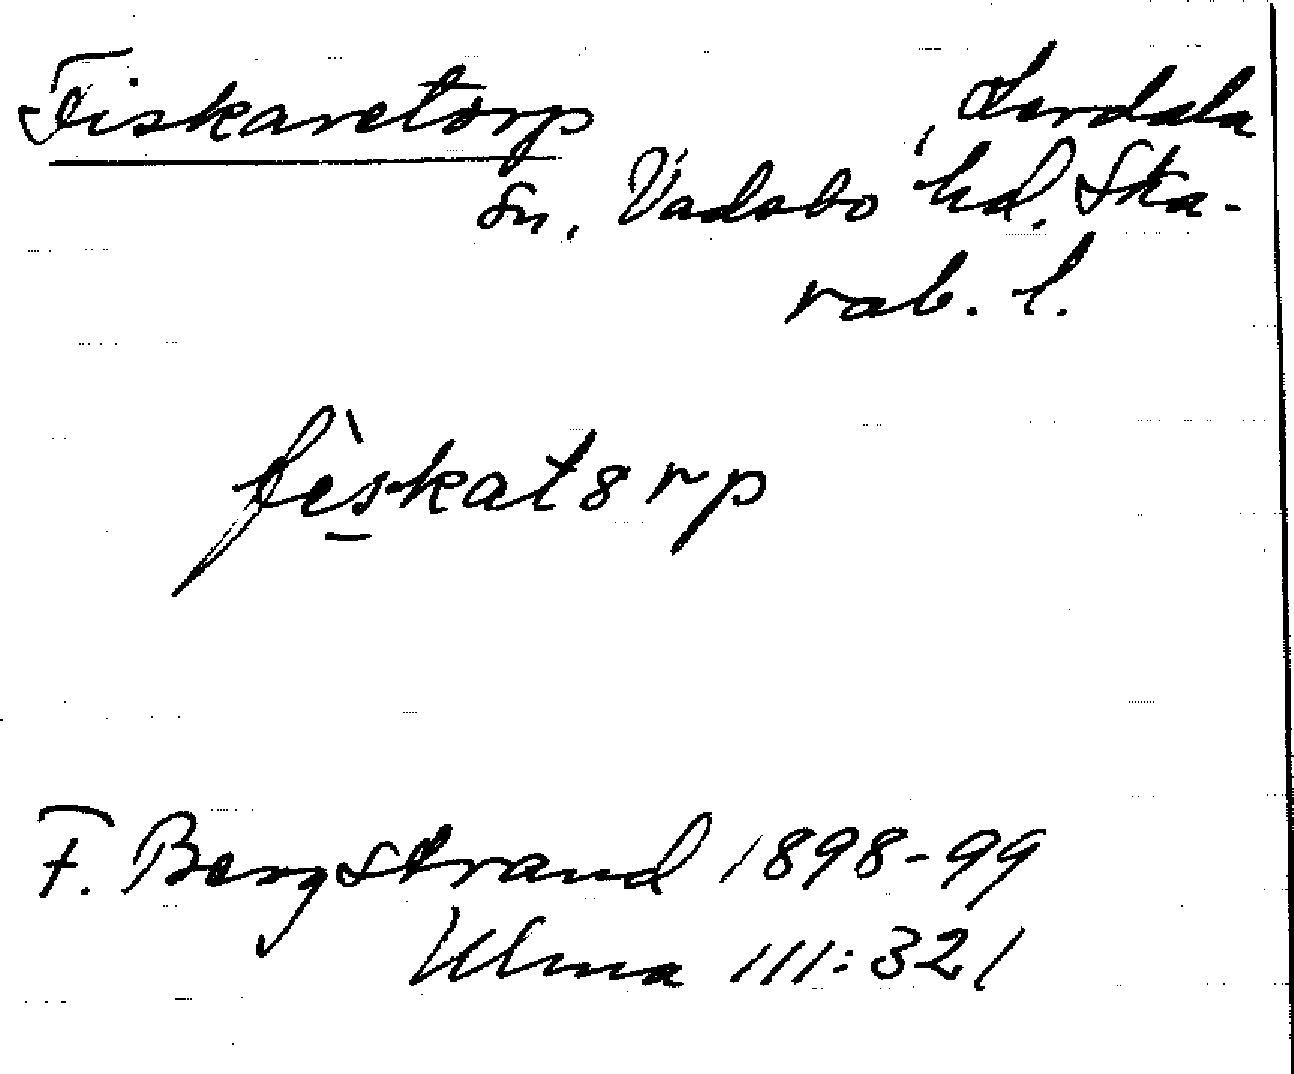 Fiskaretorp
Lerdala
Sn, Vadsbo hd. Ska-
rab. l.
fèskat8rp
F. Bergstrand 1898-99
Ulma 111:321